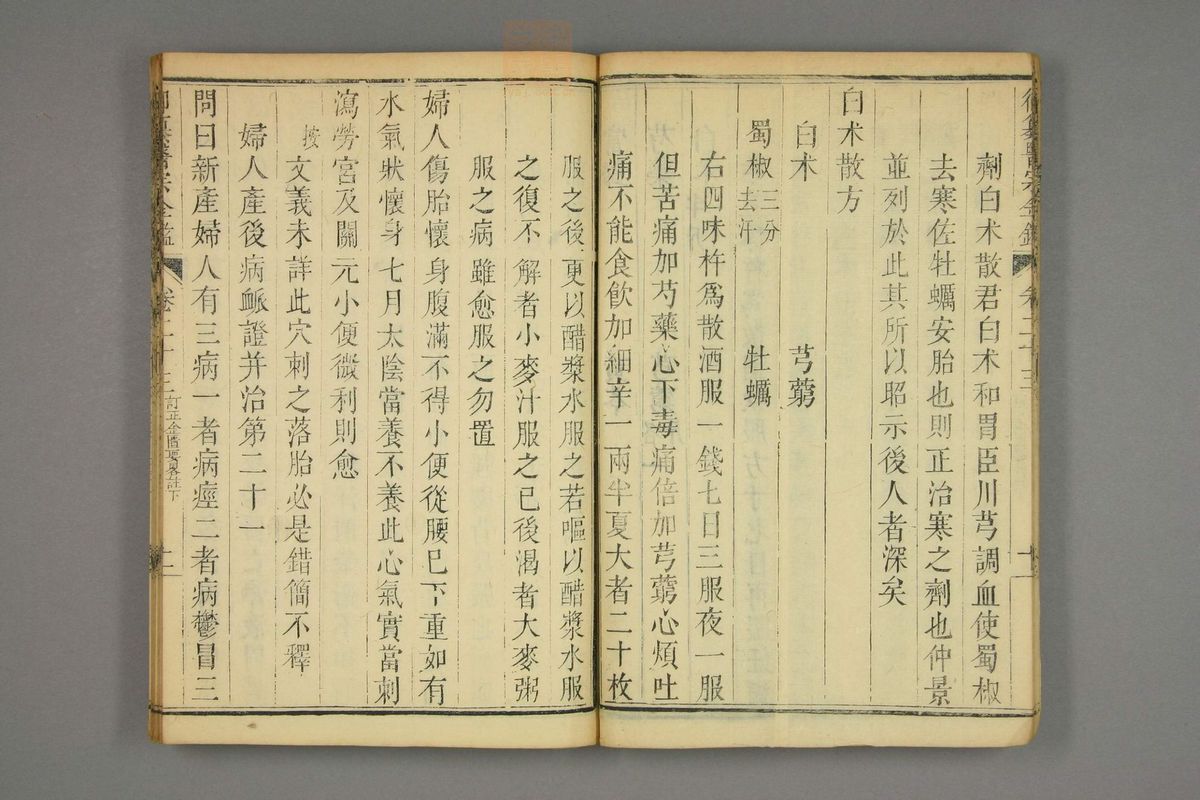 劑白朮散君白朮和胃臣川芎調血使蜀椒
去寒佐牡蠣安胎也則正治寒之劑也仲景
並列於此其所以昭示後人者深矣
白朮散方
白朮 芎藭
蜀椒三分去汗 牡蠣
右四味杵爲散酒服一錢七日三服夜一服
但苦痛加芍藥心下毒痛倍加芎藭心煩吐
痛不能食飲加細辛一兩半夏大者二十枚
服之後更以醋漿水服之若嘔以醋漿水服
之復不解者小麥汁服之已後渴者大麥粥
服之病雖愈服之勿置
婦人傷胎懷身腹滿不得小便從腰已下重如有
水氣狀懷身七月太陰當養不養此心氣實當刺
瀉勞宮及關元小便微利則愈
按文義未詳此穴刺之落胎必是錯簡不釋
婦人產後病脈證并治第二十一
問曰新產婦人有三病一者病痙二者病鬱冒三
卷二十三
訂正金匱要畧註下